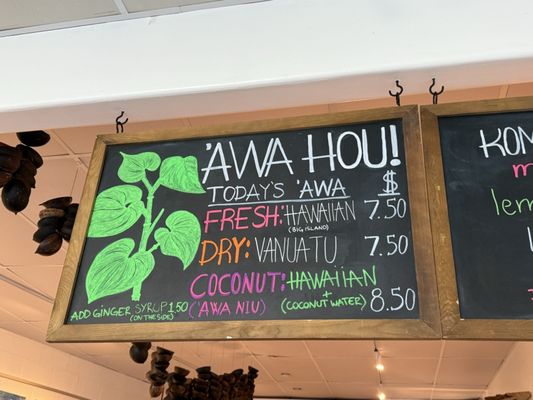 'AWA HOU!
TODAY'S 'AWA $
FRESH: HAWAIIAN 7.50
(BIG ISLAND)
DRY: VANUATU 7.50
COCONUT: HAWAIIAN
('AWA NIU) + (COCONUT WATER) 8.50
ADD GINGER SYRUP 1.50
(ON THE SIDE)